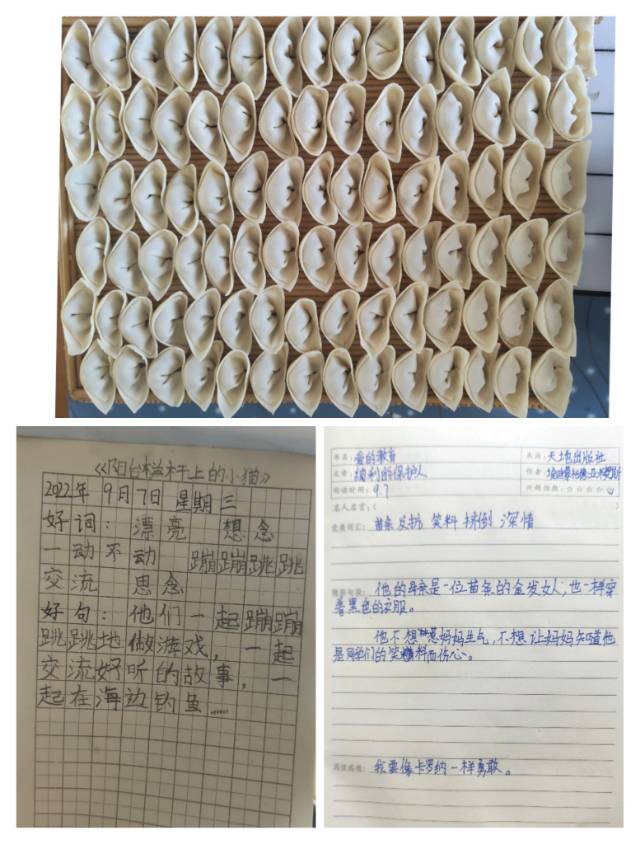 《阳台栏杆上的小猫》
2022年 9月7日 星期三
好词：漂亮 想念
一动不动 蹦蹦跳跳
交流 思念
好句：他们一起蹦蹦
跳跳地做游戏，一起
交流好听的故事，一
起在海边钓鱼……
书名：爱的教育 出版：天地出版社
文章：纳利的保护人 作者：
阅读时间：9.7
名人名言：（
苗条 反抗 笑料 挤倒 深情
他的母亲是一位苗条的金发女人，也一样穿
着黑色的衣服。
他不想惹妈妈生气，不想让妈妈知道他
是同学们的笑料而伤心。
我要像卡罗纳一样勇敢。